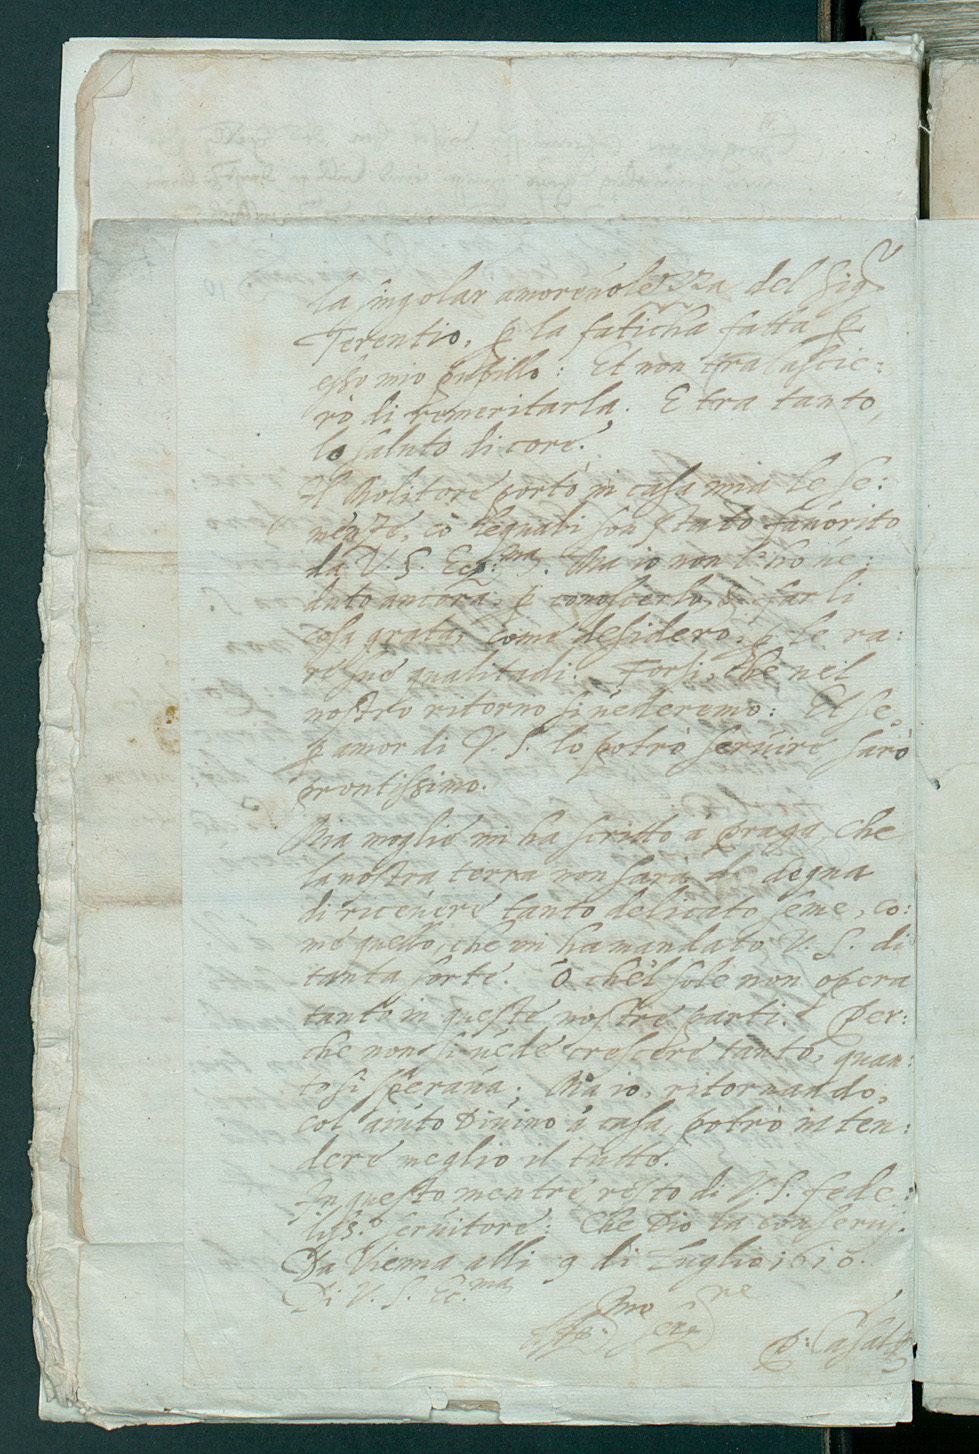 la singolar amoreuolezza del Sig.r
Terentio, p la faticha fatta p
esso mio pupillo: Et non tralascie:
rò di remeritarla. E tra tanto,
lo saluto di core.
Il Molitore portò in casa mia le se:
menze, cõ lequali son stato fauorito
da V. S. Ecc:ma. Ma io non l'hò ue:
duto ancora, p conoscerlo, e farli
cosa grata, come desidero, p le ra:
re sue qualitadi. Forsi, che nel
nostro ritorno si uederemo: Et se,
p amor di V. S. lo potrò seruire sarò
prontissimo.
Mia moglie mi ha scritto à Praga, che
la nostra terra non sarà degna
di riceuere tanto delicato seme, co:
me quello, che mi ha mandato V. S. di
tanta sorte. O che'l sole non opera
tanto in queste nostre parti. Per:
che non si uede crescere tanto, quan:
to si speraua; Ma io, ritornando,
col aiuto Diuino à casa, potrò inten:
dere meglio il tutto.
In questo mentre, resto di V. S. fede:
liss.o seruitore: Che Dio la conserui.
Da Vienna alli 9 di Luglio 1610.
Di V. S. Ec.ma
Aff:mo ser.re
P: Casal